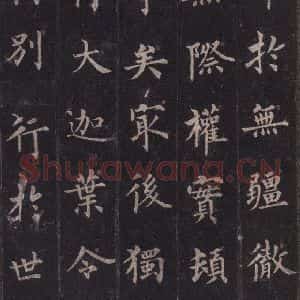 於無疆徹
際權實頓
矣㝡後獨
大迦葉令
別行於世
Shufawang.CN